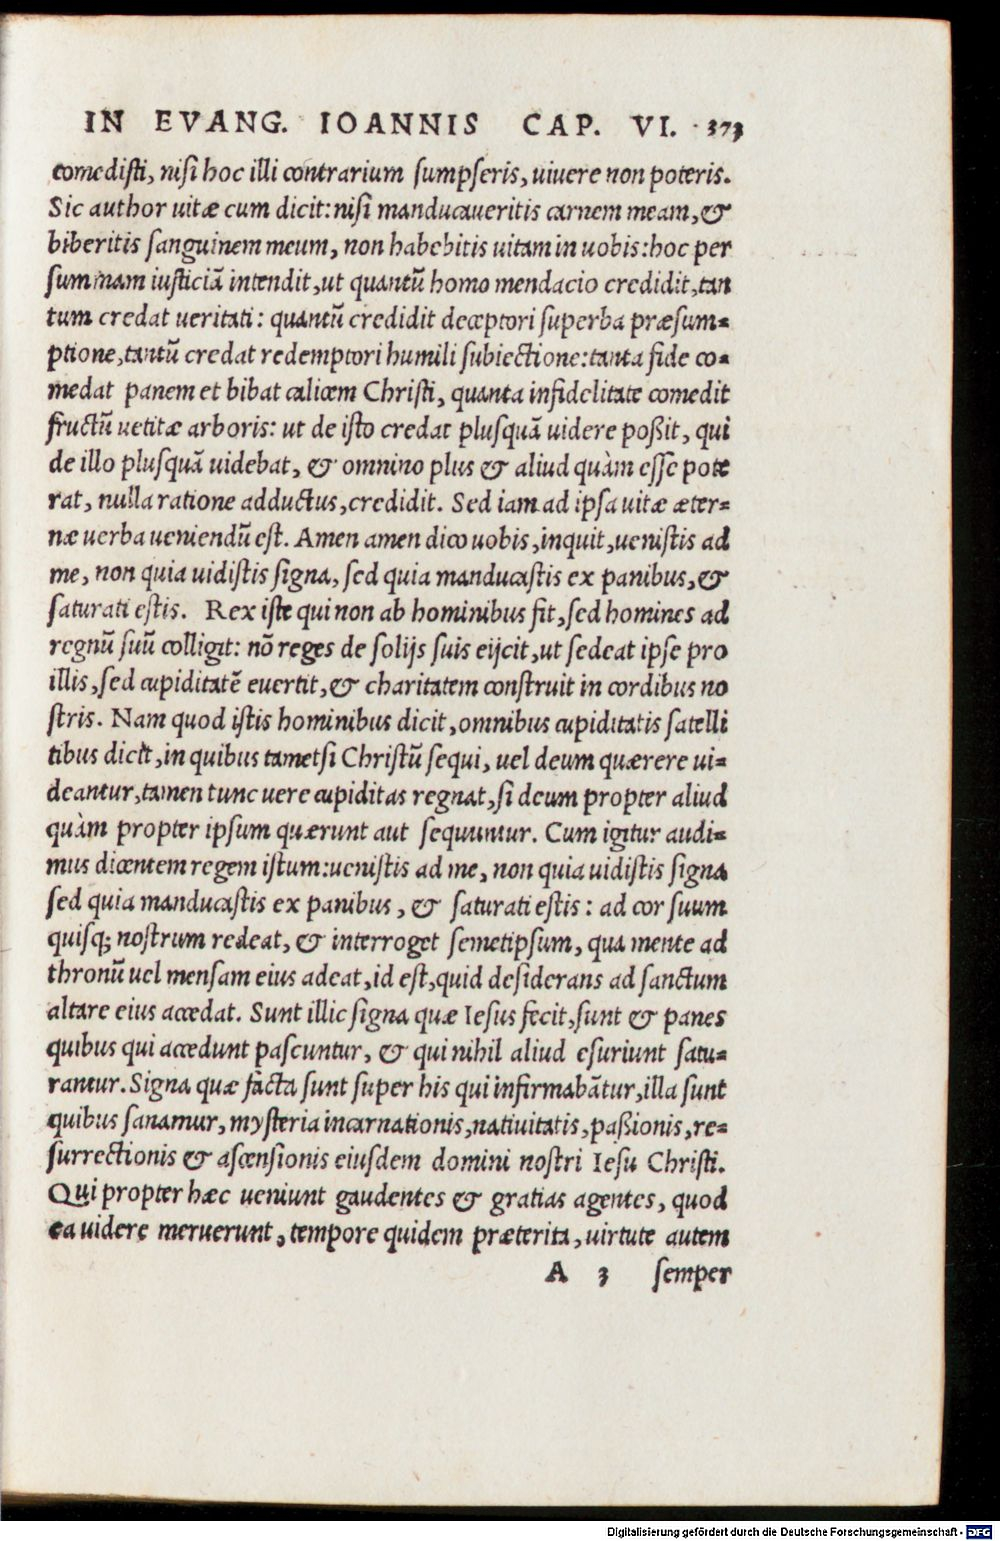 IN EVANG. IOANNIS CAP. VI. 373
comedisti, nisi hoc illi contrarium sumpseris, uiuere non poteris.
Sic author uitæ cum dicit: nisi manducaueritis carnem meam, &
biberitis sanguinem meum, non habebitis uitam in uobis: hoc per
summam iusticiã intendit, ut quantũ homo mendacio credidit, tan
tum credat ueritati: quantũ credidit deceptori superba præsum=
ptione, tantũ credat redemptori humili subiectione: tanta fide co=
medat panem et bibat calicem Christi, quanta infidelitate comedit
fructũ uetitæ arboris: ut de isto credat plusquã uidere poßit, qui
de illo plusquã uidebat, & omnino plus & aliud quàm esse pote
rat, nulla ratione adductus, credidit. Sed iam ad ipsa uitæ æter=
næ uerba ueniendũ est. Amen amen dico uobis, inquit, uenistis ad
me, non quia uidistis signa, sed quia manducastis ex panibus, &
saturati estis. Rex iste qui non ab hominibus fit, sed homines ad
regnũ suũ colligit: nõ reges de solijs suis eijcit, ut sedeat ipse pro
illis, sed cupiditatẽ euertit, & charitatem construit in cordibus no
stris. Nam quod istis hominibus dicit, omnibus cupiditatis satelli
tibus dicit, in quibus tametsi Christũ sequi, uel deum quærere ui=
deantur, tamen tunc uere cupiditas regnat, si deum propter aliud
quàm propter ipsum quærunt aut sequuntur. Cum igitur audi=
mus dicentem regem istum: uenistis ad me, non quia uidistis signa
sed quia manducastis ex panibus, & saturati estis: ad cor suum
quisq; nostrum redeat, & interroget semetipsum, qua mente ad
thronũ uel mensam eius adeat, id est, quid desiderans ad sanctum
altare eius accedat. Sunt illic signa quæ Iesus fecit, sunt & panes
quibus qui accedunt pascuntur, & qui nihil aliud esuriunt satu=
rantur. Signa quæ facta sunt super his qui infirmabãtur, illa sunt
quibus sanamur, mysteria incarnationis, natiuitatis, paßionis, re=
surrectionis & ascensionis eiusdem domini nostri Iesu Christi.
Qui propter hæc ueniunt gaudentes & gratias agentes, quod
ea uidere meruerunt, tempore quidem præterita, uirtute autem
A 3 semper
Digitalisierung gefördert durch die Deutsche Forschungsgemeinschaft - DFG